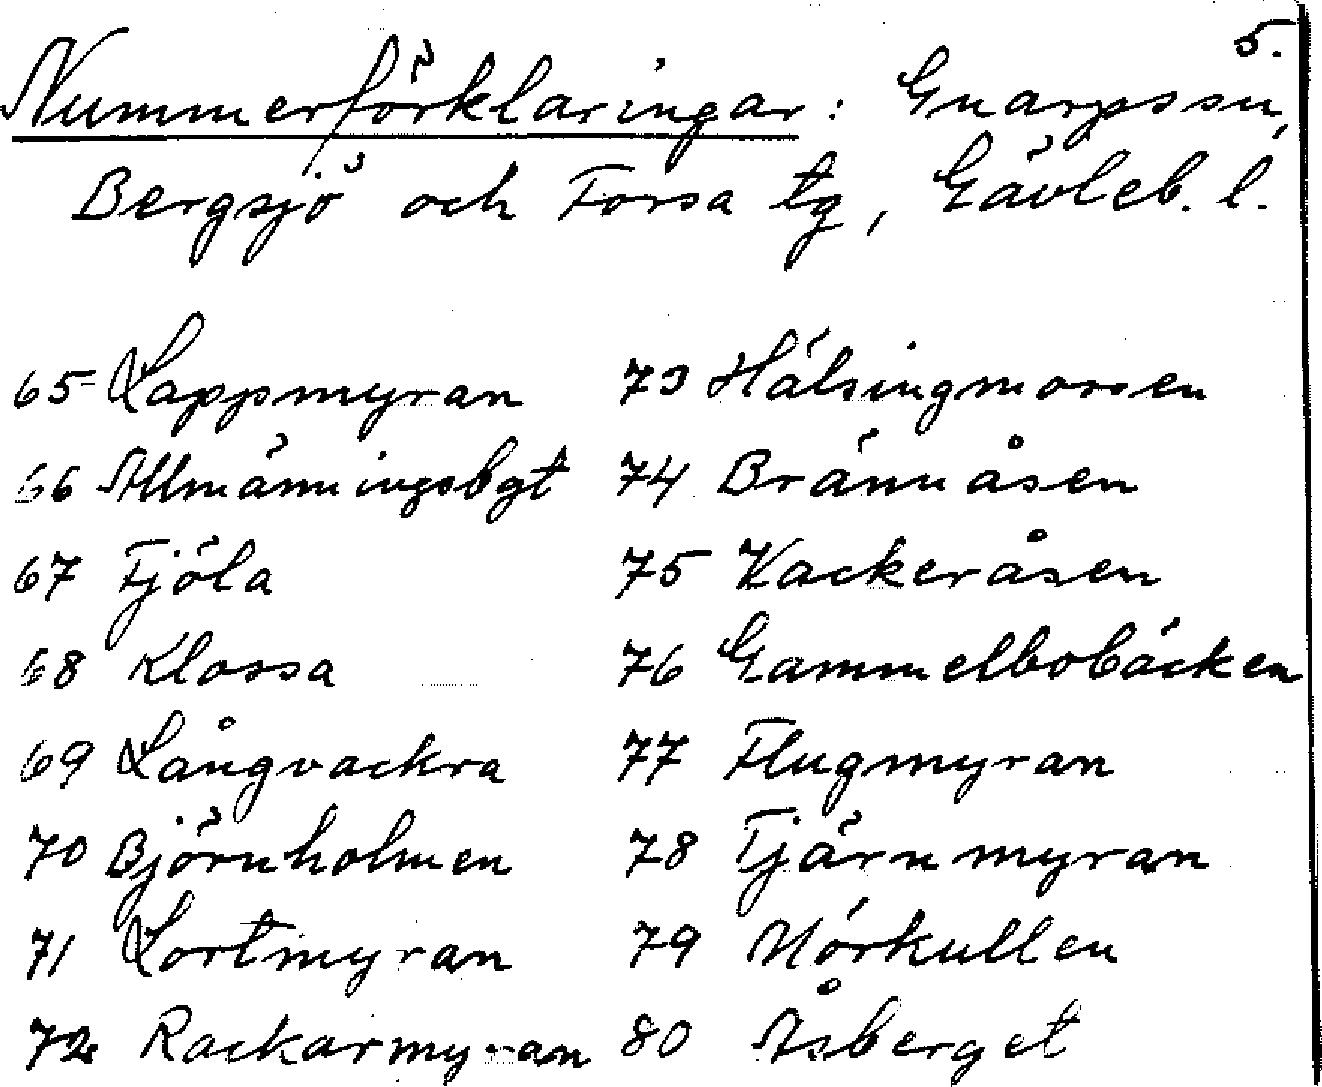 5.
Nummerförklaringar: Gnarps sn,
Bergsjö och Forsa tg, Gävleb. l.
65 Lappmyran
66 Allmänningsbgt
67 Tjöla
68 Klossa
69 Långvackra
70 Björnholmen
71 Lortmyran
72 Rackarmyran
73 Hälsingmossen
74 Brännåsen
75 Kackeråsen
76 Gammelbobäcken
77 Flugmyran
78 Tjärnmyran
79 Mörkullen
80 Åsberget